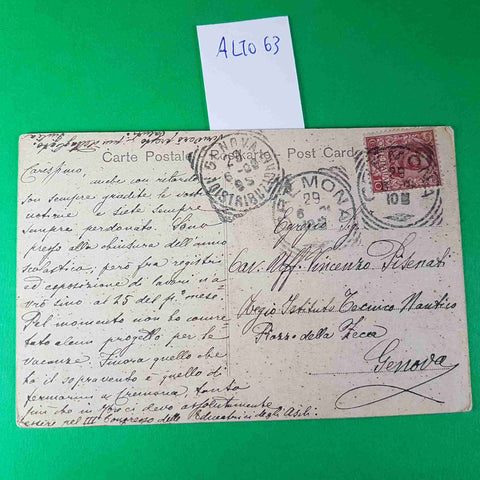 ALTO 63
Carte Postale Postkarte Post Card
GENOVA
DISTRIBUZ
CREMONA
29
6
CREMONA
29
10
Carissimo,
anche con ritardo
son sempre gradite le vostre
notizie e siete sempre
sempre perdonato. Sono
presso alla chiusura dell'anno
scolastico; però fra registri
ed esposizione di lavori n'a-
vrò sino al 25 del p. mese.
Pel momento non ho concre-
tato alcun progetto per le
vacanze. Finora quello che
ha il sopravvento è quello di
fermarmi a Cremona, tanto
più che in 7bre ci devo assolutamente
essere pel III° Congresso delle Educatrici degli Asili.
Egregio Sig.
Cav. Uff. Vincenzo Pisenati
Regio Istituto Tecnico Nautico
Piazza della Zecca
Genova